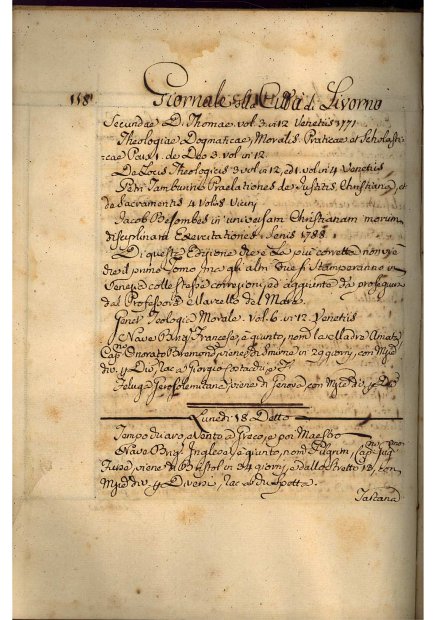 158
Giornale della Città di Livorno
Secundae D. Thomae vol. 3. in 12 Venetiis 1771
Theologiae Dogmaticae, Moralis, Praticae et Scholasti-
cae Pars 1. de Deo 3 vol in 12.
De Locis Theologicis 3 vol in 12, ed 1 vol in 4 Venetiis
Petri Tamburini Praelationes de Justitia Christiana, et
de Sacramentis 4 Volus
Jacob Besombes in universam Christianam morum
disciplinam Exercitationes. Senis 1788
Di questa Edizione che è la più corretta non v'è
che il primo tomo, ma gli altri due si stamperanno in
Venezia colle stesse correzioni, ed aggiunte dal
dal Professore Marcello del Mare.
Genet Teologia Morale. vol. 6. in 12. Venetiis
Nave Francese, è giunto, nom.
Cap. Onorato Bremond, viene da Smirne in 29 giorni, con
div. e Div, Rac. a Giorgio
Feluga Gerosolemitana, viene di Genova con
Lunedì 18. Detto
Tempo e vento a Greco, e poi Maestro
Nave Inglese, è giunto, nom. Pilgrim, Cap.
viene di Bristol in 34 giorni, e dallo Stretto 12, con
div. e Diversi, rac. ab
Toscana